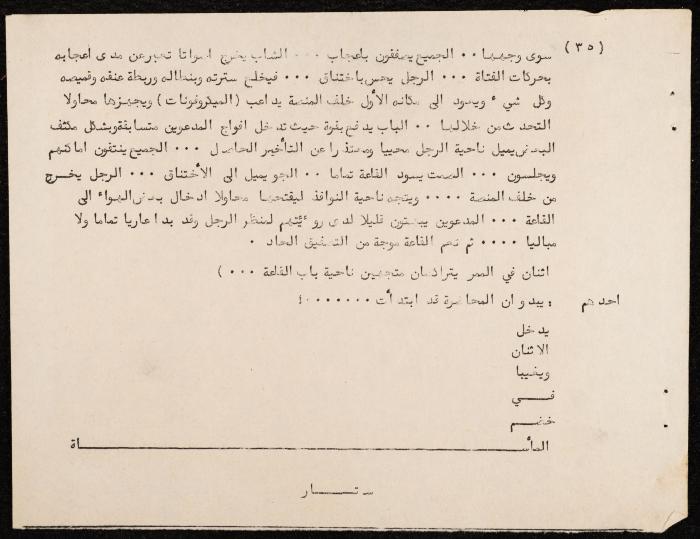 (٣٥)
سوى وجهها ٠٠ الجميع يصفقون باعجاب ٠٠٠ الشاب يخرج اصواتا تعبر عن مدى اعجابه
بحركات الفتاة ٠٠٠ الرجل يحس باختناق ٠٠٠ فيخلع سترته وبنطاله وربطة عنقه وقميصه
وكل شيء ويعود الى مكانه الأول خلف المنصة يداعب (الميكروفونات) ويجهزها محاولا
التحدث من خلالها ٠٠ الباب يدفع بقوة حيث تدخل افواج المدعوين متسابقة وبشكل مكثف
البعض يميل ناحية الرجل محييا ومعتذرا عن التأخير الحاصل ٠٠٠ الجميع ينتقون اماكنهم
ويجلسون ٠٠٠ الصمت يسود القاعة تماما ٠٠ الجو يميل الى الأختناق ٠٠٠ الرجل يخرج
من خلف المنصة ٠٠٠٠ ويتجه ناحية النوافذ ليفتحها محاولا ادخال بعض الهواء الى
القاعة ٠٠٠ المدعوين يبهتون قليلا لدى رؤيتهم لمنظر الرجل وقد بدا عاريا تماما ولا
مباليا ٠٠٠٠ ثم تعم القاعة موجة من التصفيق الحاد ٠
اثنان في الممر يتراكضان متجهين ناحية باب القاعة ٠٠٠)
احدهم : يبدو ان المحاضرة قد ابتدأت ٠٠٠٠٠٠٠!
يدخل
الاثنان
ويغيبا
فــي
خضــم
المأســـــــــــــــــــــــــــــــــــــــــــــــاة
ستــار